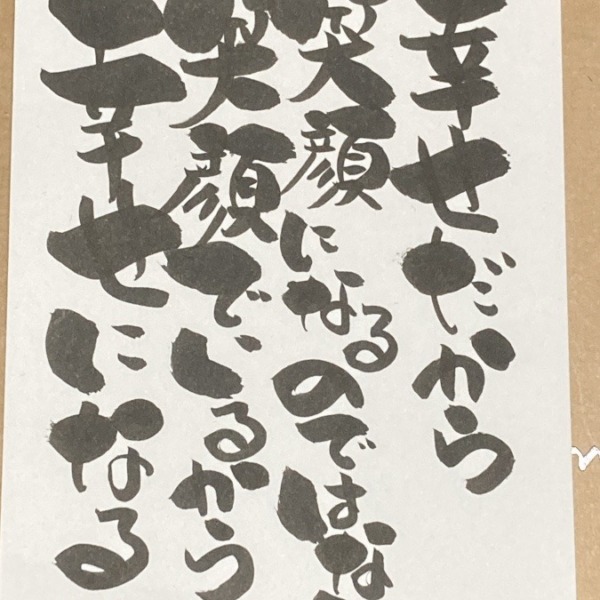 幸せだから
笑顔になるのではな
笑顔でいるから
幸せになる